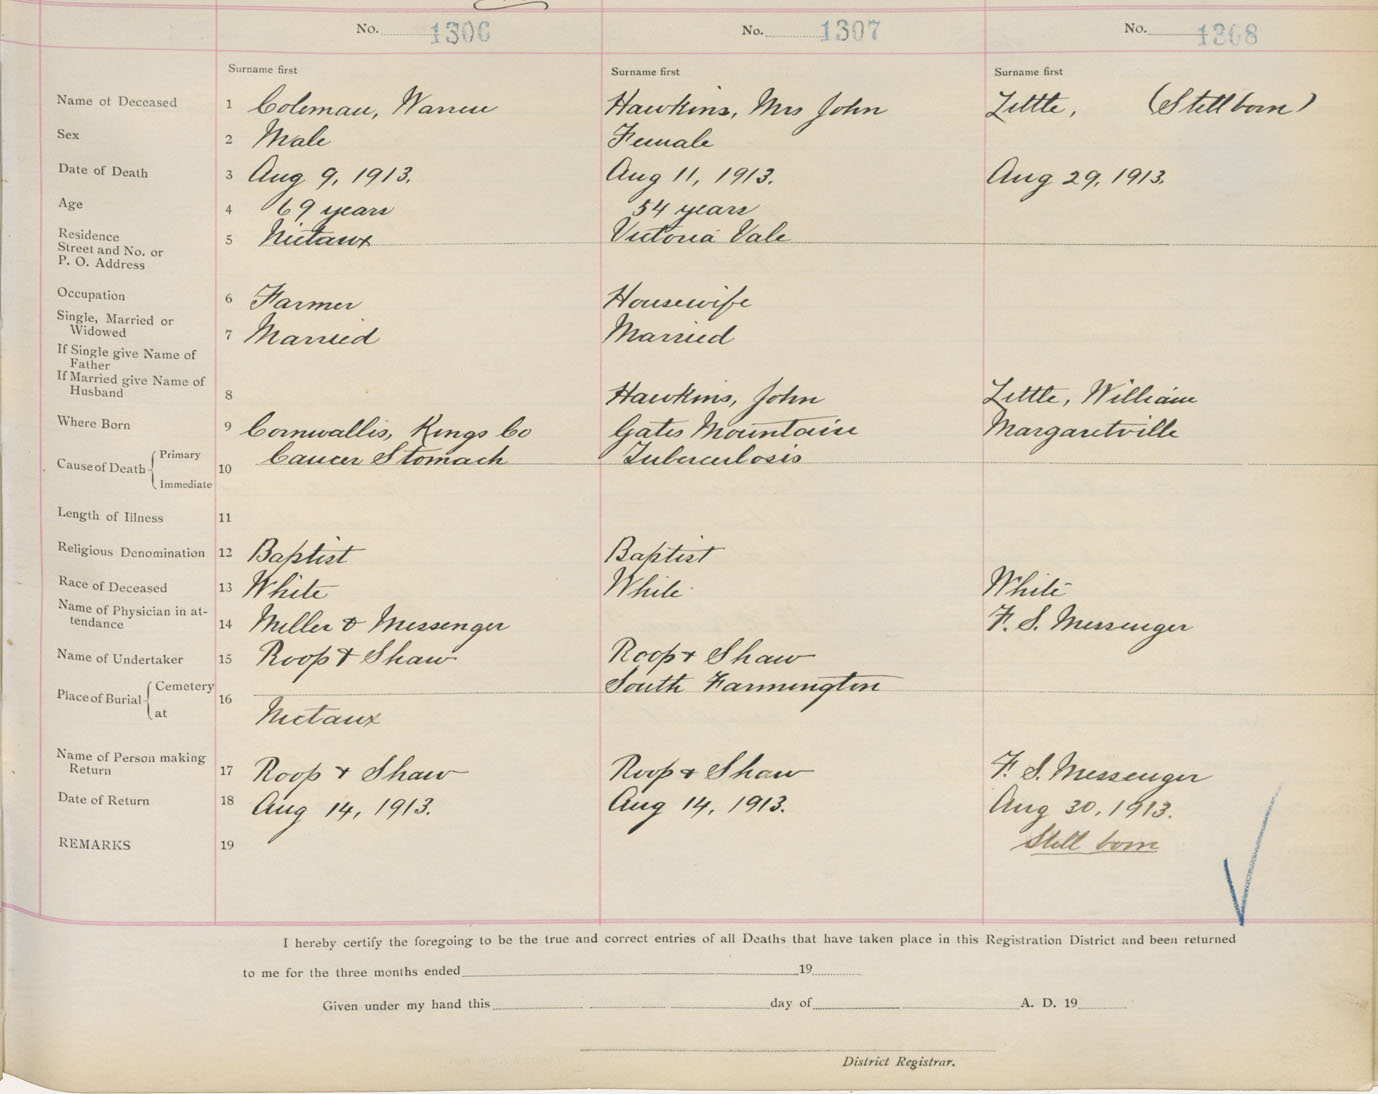 No. 1306 No. 1307 No. 1308
Surname first Surname first Surname first
Name of Deceased 1 Coleman, Warren Hawkins, Mrs John Little, (Still born)
Sex 2 Male Female
Date of Death 3 Aug 9, 1913. Aug 11, 1913. Aug 29, 1913.
Age 4 69 years 54 years
Residence
Street and No. or
P. O. Address 5 Nictaux Victoria Vale
Occupation 6 Farmer Housewife
Single, Married or
Widowed 7 Married Married
If Single give Name of
Father
If Married give Name of
Husband 8 Hawkins, John Little, William
Where Born 9 Cornwallis, Kings Co Gates Mountain Margaretville
Cause of Death Primary Cancer Stomach Tuberculosis
10
Immediate
Length of Illness 11
Religious Denomination 12 Baptist Baptist
Race of Deceased 13 White White White
Name of Physician in at-
tendance 14 Miller & Messenger F. S. Messenger
Name of Undertaker 15 Roop & Shaw Roop & Shaw
Place of Burial Cemetery South Farmington
16
at Nictaux
Name of Person making
Return 17 Roop & Shaw Roop & Shaw F. S. Messenger
Date of Return 18 Aug 14, 1913. Aug 14, 1913. Aug 30, 1913.
REMARKS 19 Still born
I hereby certify the foregoing to be the true and correct entries of all Deaths that have taken place in this Registration District and been returned
to me for the three months ended 19
Given under my hand this day of A. D. 19
District Registrar.